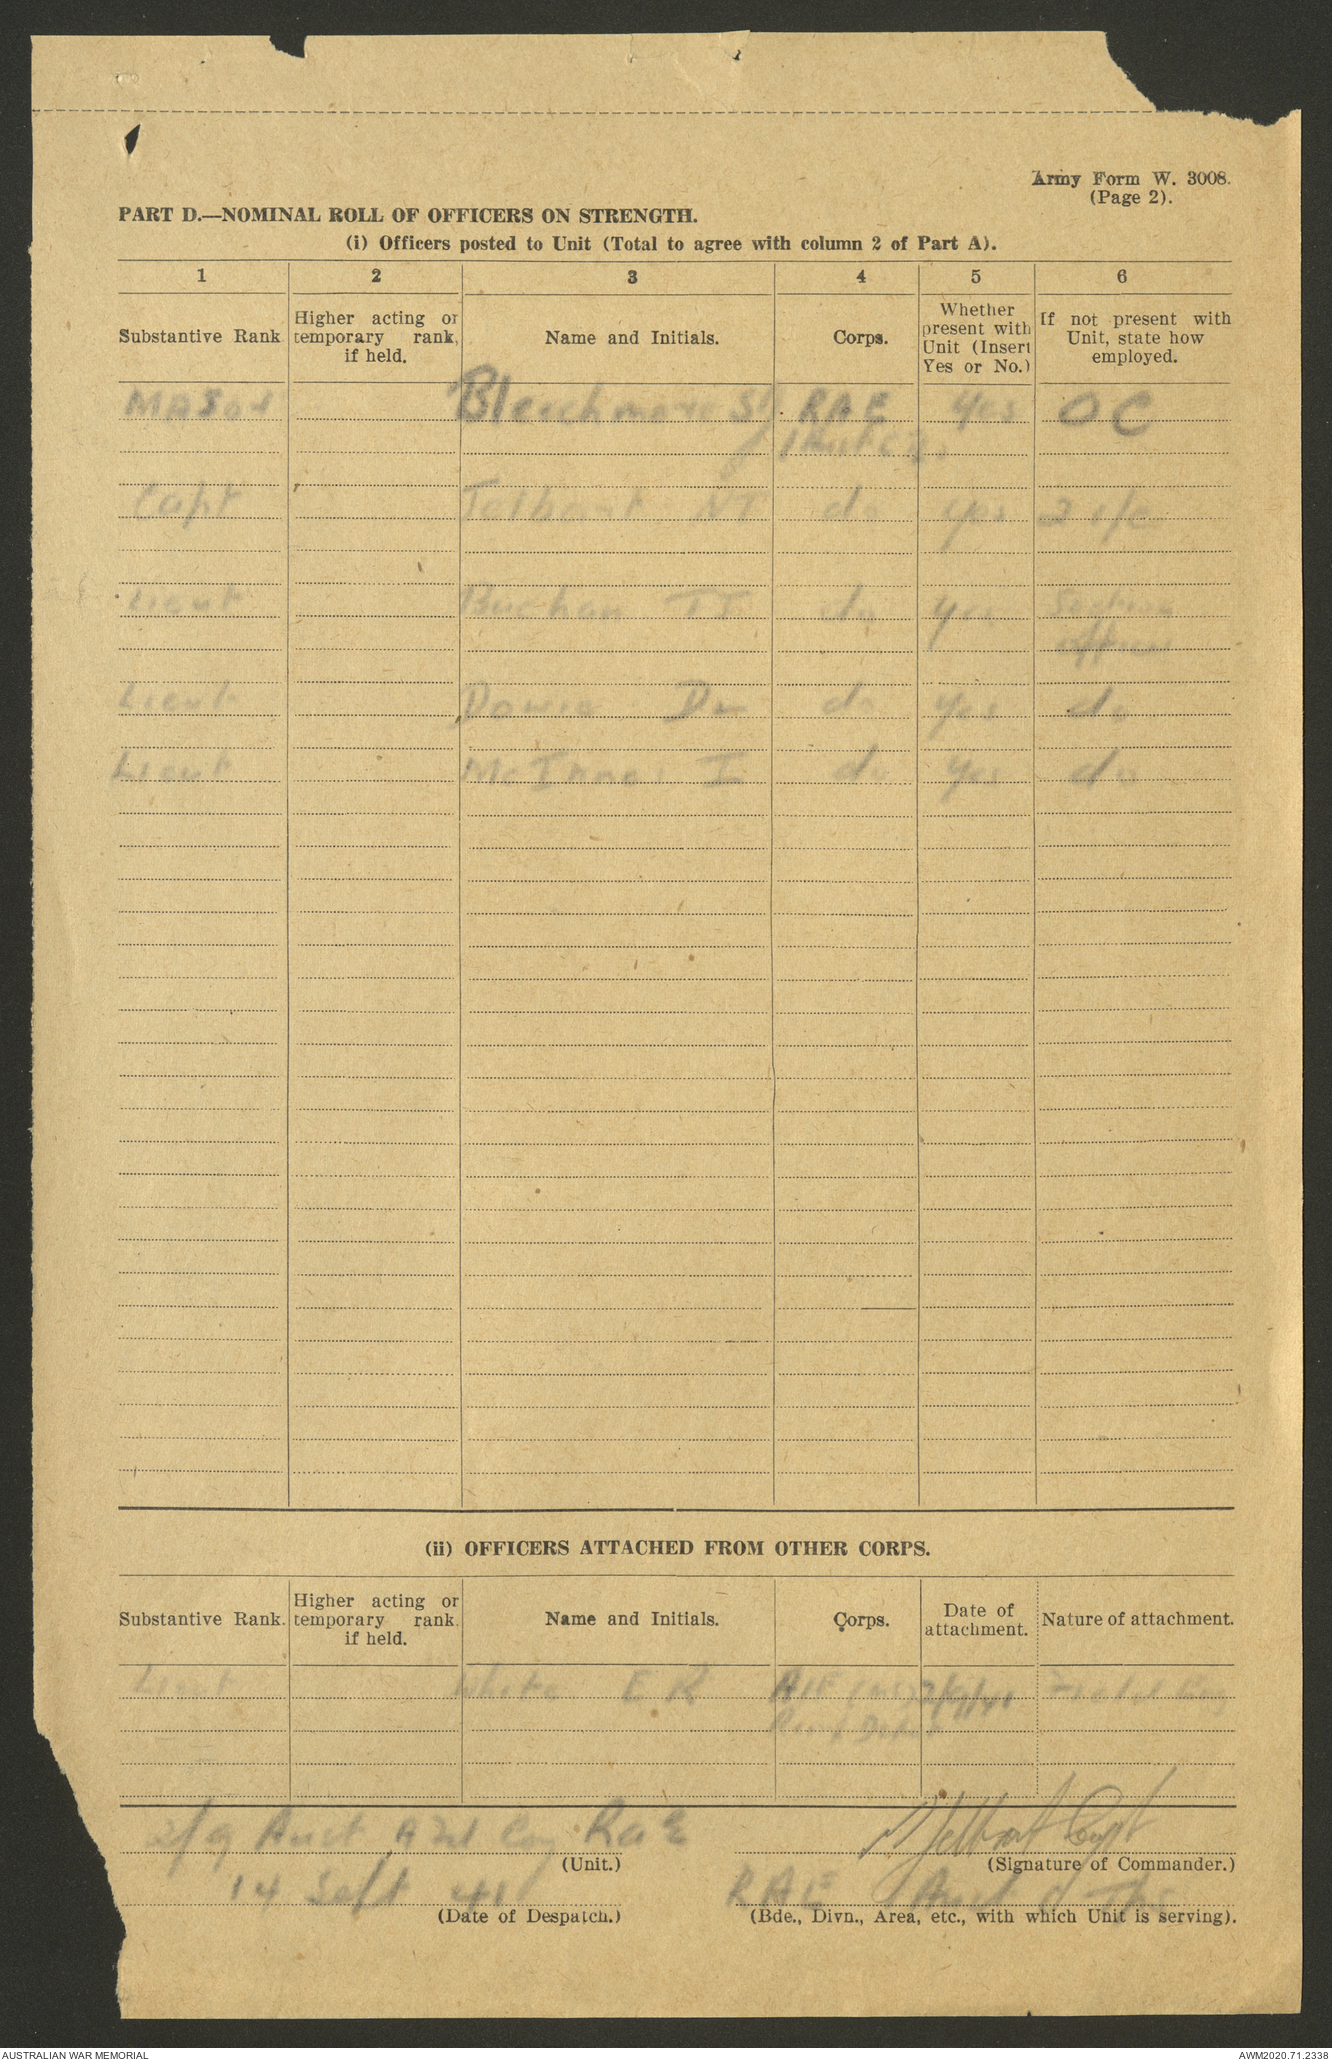 Army Form W. 3008.
(Page 2).
PART D.—NOMINAL ROLL OF OFFICERS ON STRENGTH.
(i) Officers posted to Unit (Total to agree with column 2 of Part A).
1 2 3 4 5 6
Substantive Rank
Higher acting or temporary rank, if held.
Name and Initials.
Corps.
Whether present with Unit (Insert Yes or No.)
If not present with Unit, state how employed.
Bleechmore RAE Yes OC
Capt Jolbart NT do yes 2 i/c
Lieut Buchan do yes Section
officer
Lieut do yes do
Lieut McInnes I do Yes do
(ii) OFFICERS ATTACHED FROM OTHER CORPS.
Substantive Rank.
Higher acting or temporary rank. if held.
Name and Initials.
Corps.
Date of attachment.
Nature of attachment.
Lieut White E R AIF
2/9 Aust Fd Coy RAE Capt
(Unit.) (Signature of Commander.)
14 Sept 41 RAE Aust
(Date of Despatch.) (Bde., Divn., Area, etc., with which Unit is serving).
AUSTRALIAN WAR MEMORIAL AWM2020.71.2338